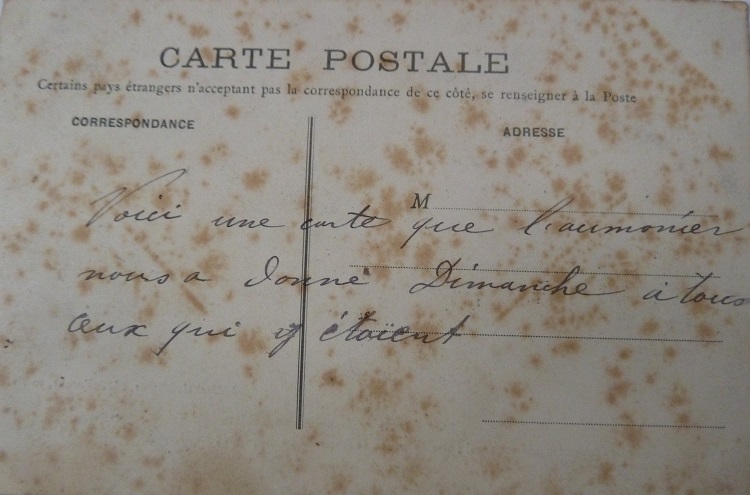 CARTE POSTALE
Certains pays étrangers n'acceptant pas la correspondance de ce côté, se renseigner à la Poste
CORRESPONDANCE
ADRESSE
M
Voici une carte que l'aumonier
nous a donné Dimanche à tous
ceux qui y étaient